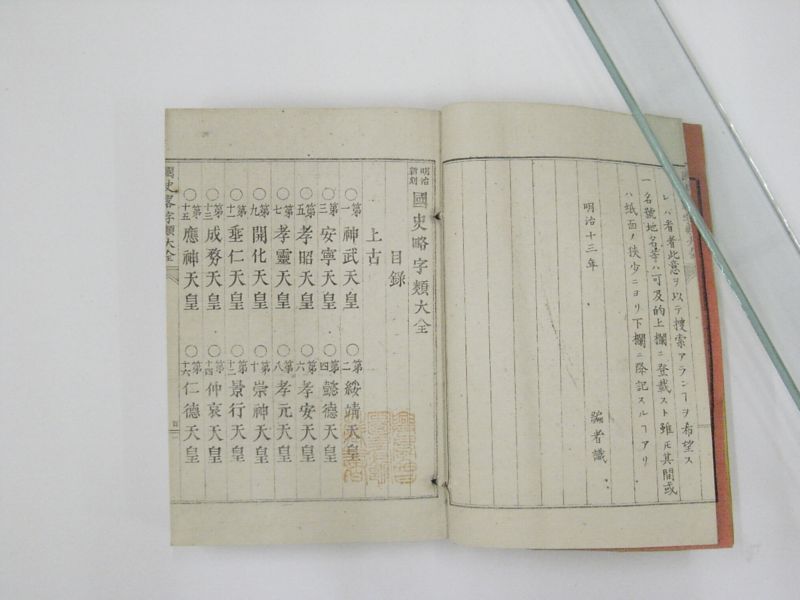 レバ看者此意ヲ以テ捜索アランヿヲ希望ス
一名號地名等ハ可及的上欄ニ登載スト雖𪜈其間或
ハ紙面ノ狭少ニヨリ下欄ニ降記スルヿアリ
明治十三年
編者識
明治新刻 國史略字類大全
目録
上古
〇第一神武天皇 〇第二綏靖天皇
〇第三安寧天皇 〇第四懿德天皇
〇第五孝昭天皇 〇第六孝安天皇
〇第七孝靈天皇 〇第八孝元天皇
〇第九開化天皇 〇第十崇神天皇
〇第十一垂仁天皇 〇第十二景行天皇
〇第十三成務天皇 〇第十四仲哀天皇
〇第十五應神天皇 〇第十六仁德天皇
國史略字類大全